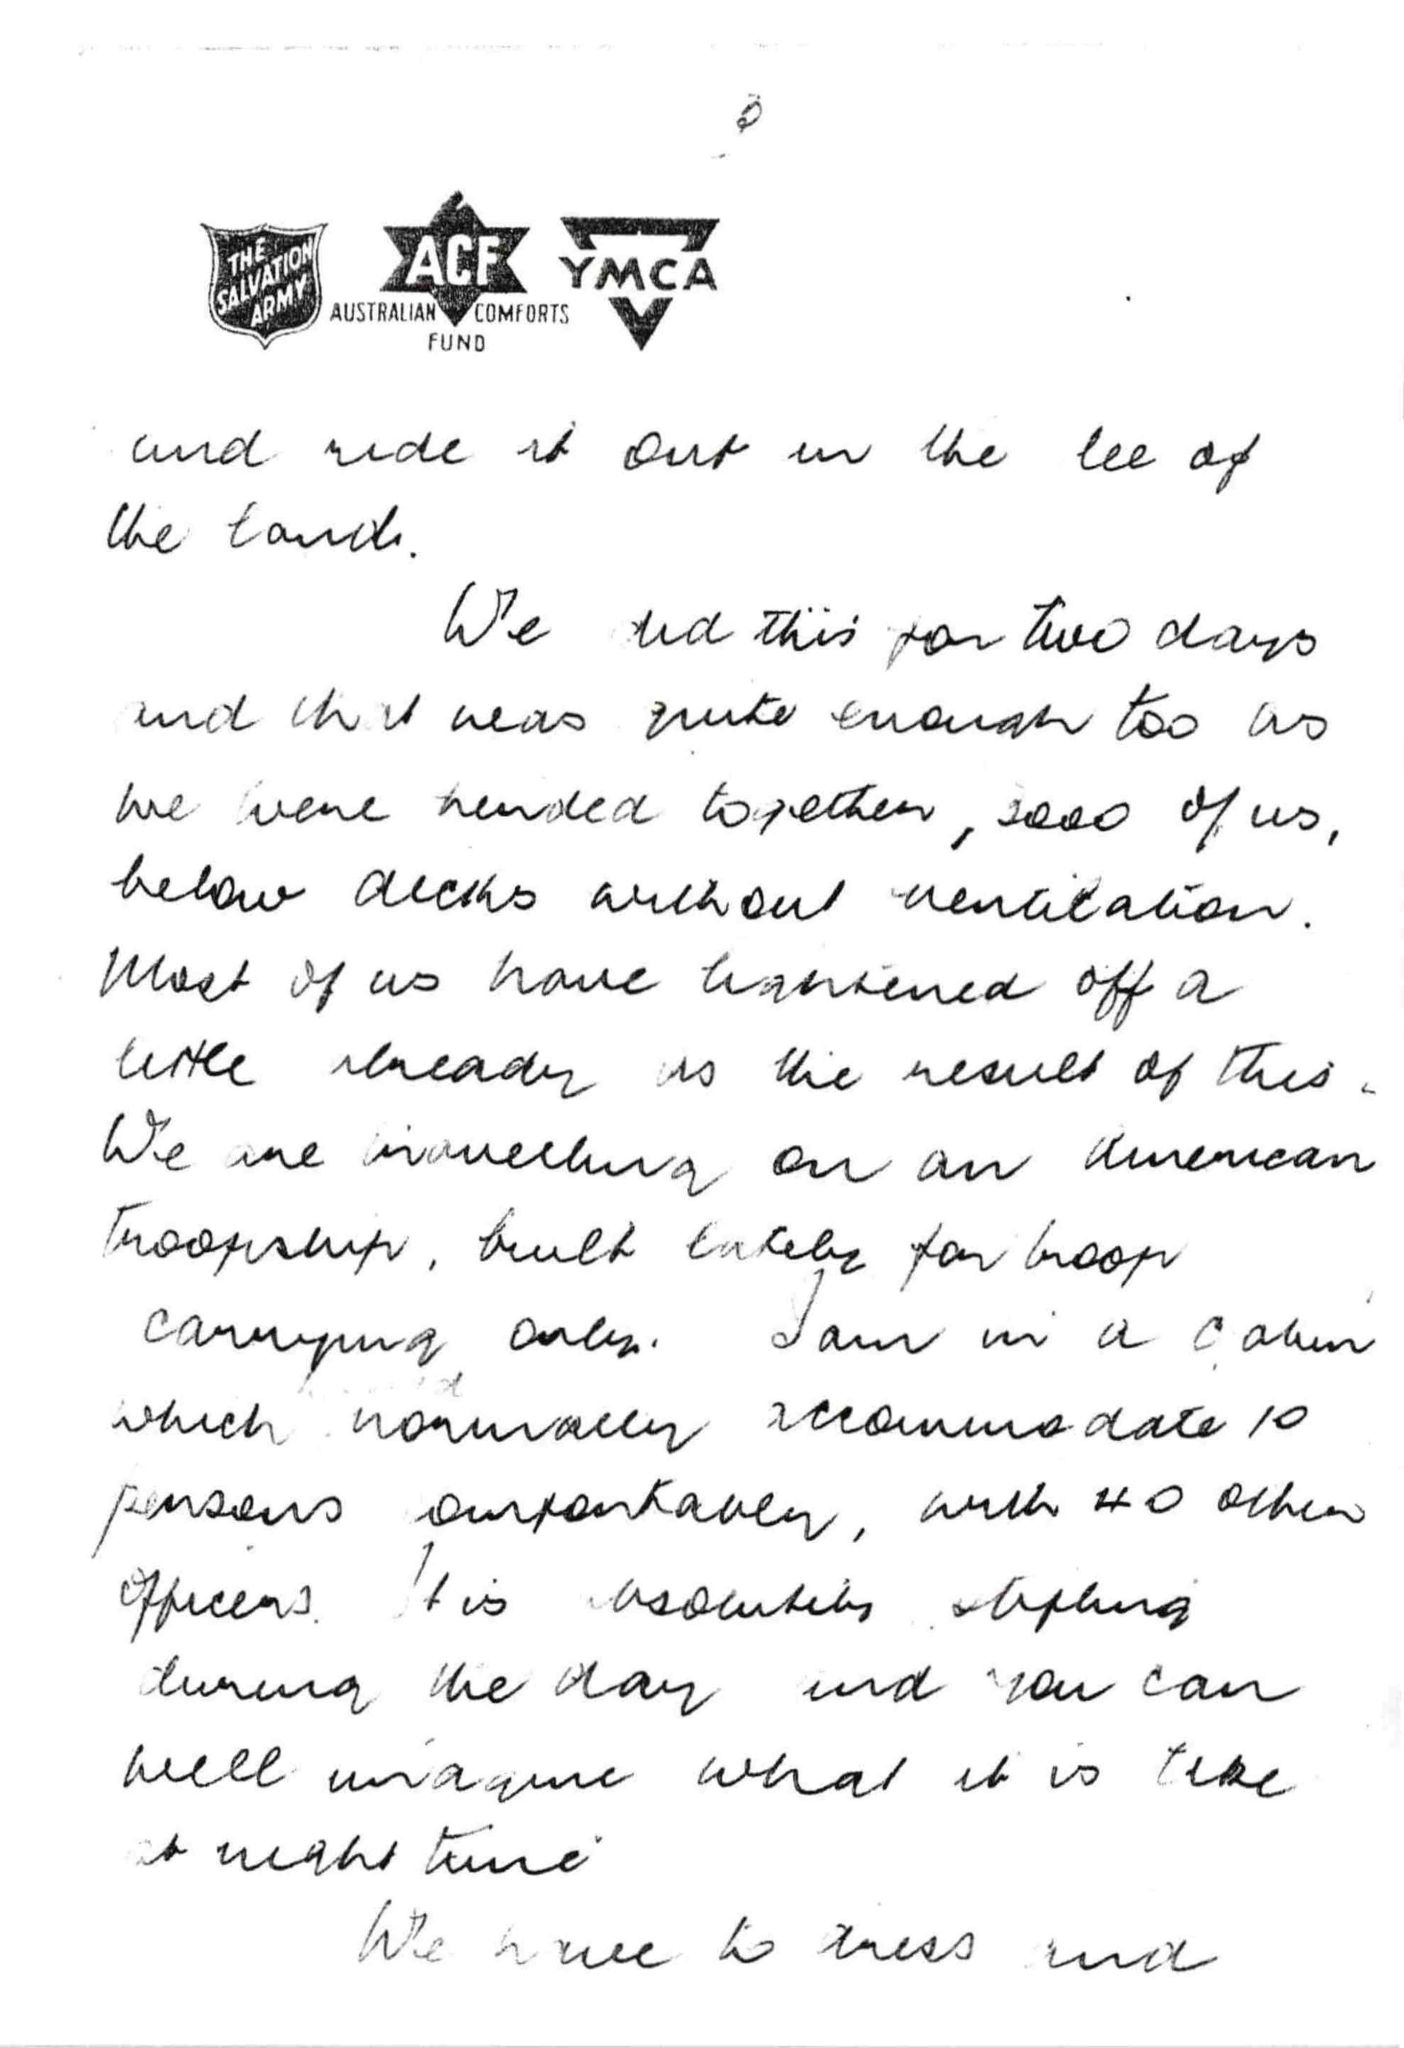 THE
SALVATION
ARMY
ACF
AUSTRALIAN COMFORTS
FUND
YMCA
and ride it out in the lee of
the land.
We did this for two days
and that was quite enough too as
we were herded together, 3000 of us,
below decks without ventilation.
Most of us have lightened off a
little already as the result of this.
We are travelling on an American
troopship, built lately for troop
carrying only. I am in a cabin
which would normally accommodate 10
persons comfortably, with 40 other
officers. It is absolutely stifling
during the day and you can
well imagine what it is like
at night time
We have to dress and